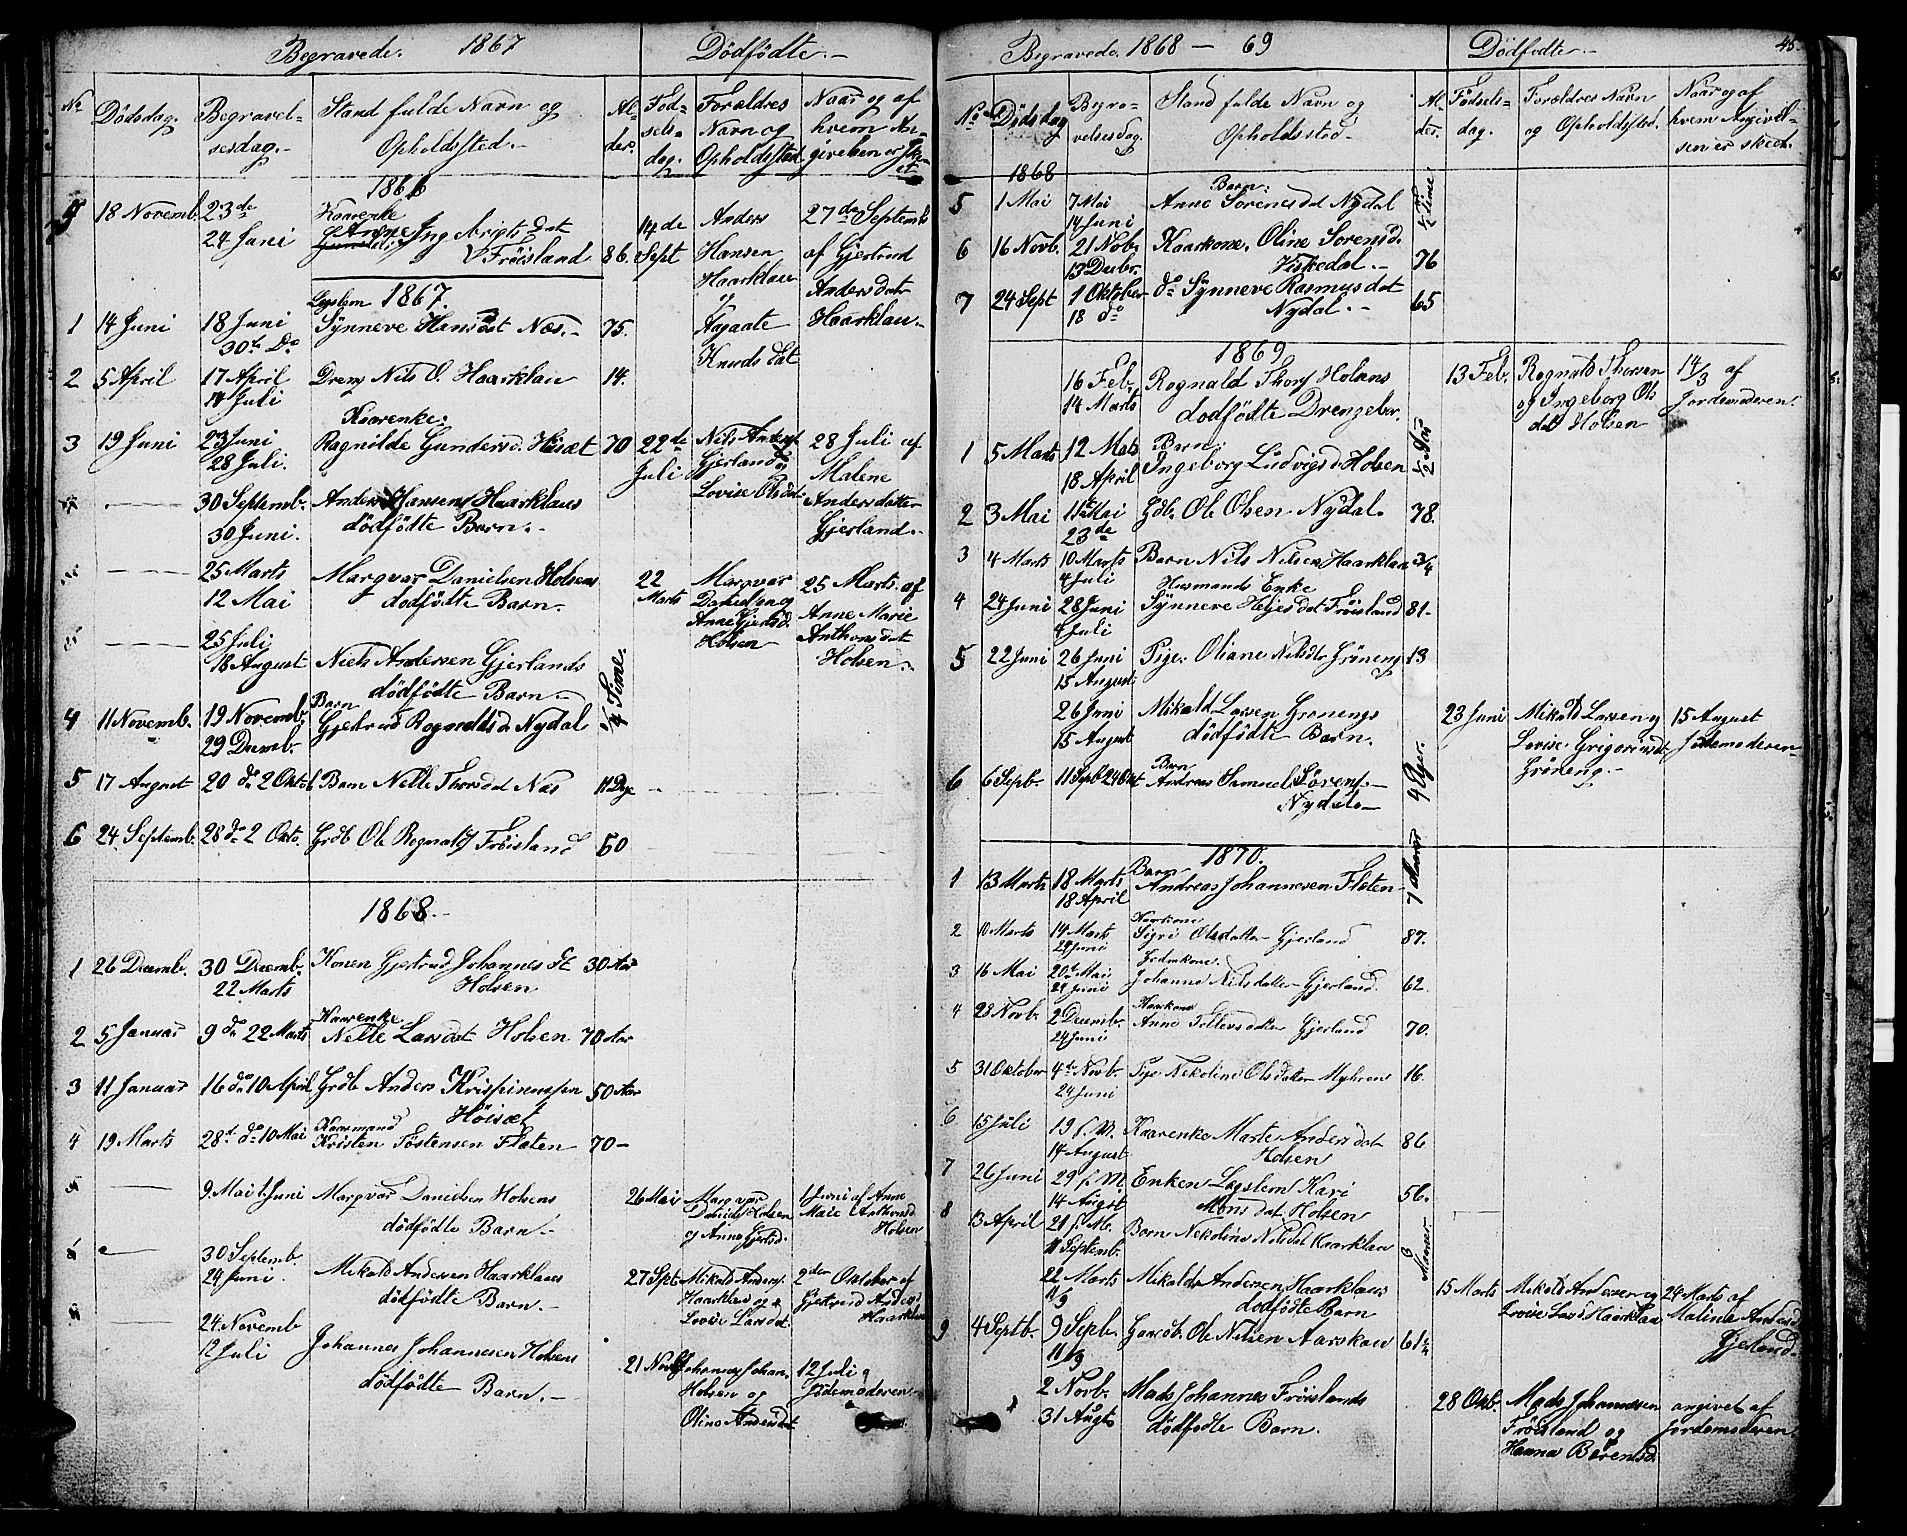 Begravede. 1867
Dödfödte.-
No
Dödsdag.
Begravel-
sesdag.-
Stand fulde Navn og
Opholdssted.-
Al-
der.
Fød-
sels-
dag.
Forældres
Navn og
Opholdssted
Naar og af
hvem An-
givelsen er ske-
et
1866
18 Novemb. 23de Kaarenke
24 Juni Ingebrigts dat
Frøisland 86.
14de Sept
Anders
Hansen
Haarklau
og
Aagaate
Knuds dat
27de Septemb
af Gjertrud
Anders dat
Haarklau-
1867.
Legslem
1 14 Juni 18 Juni Synneve Hansdat Næs.- 75.
30te Do
2 5 April 17 April Dreng Nils O. Haarklau 14.
14 Juli
Kaarenke.
3 19 Juni 23 Juni Ragnilde Gundersd. Høisæt 70
28 Juli.
22de
Juli
Nils Anders
Gjerland og
Lovise Olsdat
28 Juli af
Malene
Andersdatter
Gjerland.-
30 Septemb. Anders Hansens Haarklaus
30 Juni. dödfödte Barn.-
25 Marts Margvar Danielsen Holsens
12 Mai dödfödte Barn.-
22
Marts
Margvar
Danielsen og
Anne Gjertsd.
Holsen-
25 Marts af
Anne Marie
Anthonsdat
Holsen.-
25 Juli
18 August Niels Andersen Gjerlands
dödfödte Barn.-
Barn
4 11 Novemb. 19 Novemb. Gjertrud Rognaldsd. Nydal 3/4 Time.
29 Decemb.
5 17 August 20 do 2 Oktob. Barn Nelle Thorsdat Næs 11 Dge
6 24 Septemb. 28 do 2 Okto. Grdb Ole Rognalds Frøisland 50
1868.-
1 26 Decemb. 30 Decemb. Konen Gjertrud Johannes dt 30 Aar
22 Marts Holsen
Kaarenke
2 5 Januar 9 do 22 Marts Nelle Larsdat Holsen 70 Aar
3 11 Januar 16 do 10 April Grdb Anders Krispinussen 50 Aar
Höisæt
Kaarmand
4 19 Marts 28de do 10 Mai Kristen Töstensen Flaten 70-
9 Mai 1 Juni Margvar Danielsen Holsens
dödfödte Barn.-
26 Mai
Margvar
Daniels Holsen
og Anne Gjertsd.
1 Juni af Anne
Marie Anthonsd
Holsen
30 Septemb. Mikald Andersen Haarklaus
24 Juni. dödfödte Barn.-
27 Sept.
Mikald Anders
Haarklau og
Lovise Larsdat.
2den Oktober af
Gjertrud Andersd
Haarklau
24 Novemb Johannes Johannesen Holsens
12 Juli dödfödte Barn.-
21 Novb
Johannes Johan.
Holsen og
Oline Andersdat
12 Juli
Jödemoderen-
Begravede. 1868 - 69
Dödfødte.-
45.
No
Dödsdag
Begra-
velsesdag.
Stand fulde Navn og
Opholdssted-
Al-
der.
Fødsels-
dag.
Forældres Navn
og Opholdssted.
Naar og af
hvem Angivel-
sen er skeet.
1868
Barn:
5 1 Mai 7 Mai Anne Sorensdat Nydal 1/2 Time
14 Juni
6 16 Novb. 21 Nob. Kaarkone. Oline Sorensd. 76
13 Decbr. Viskedal.-
7 24 Sept 1 Oktober do Synneve Rasmusdat 65
18 do Nydal.-
1869
16 Feb. Rognald Thors Holsens
14 Marts dodfödte Drengebar.
13 Feb.
Rognald Thorsen
og Ingeborg Ols
dat Holsen
14/3 af
Jordemoderen.
1 5 Marts 12 Mats Barn: 1/2 Aar
18 April Ingeborg Ludvigsd. Holsen
2 3 Mai 11te Mai Gdb. Ole Olsen Nydal. 78.
23de
3 4 Marts 10 Marts Barn Nils Nilsen Haarklau 3/4
4 Juli Husmands Enke
4 24 Juni 28 Juni Synneve Heljesdat Frøisland 81-
4 Juli
5 22 Juni 26 Juni Pige: Oliane Nilsdtr Gröneng 13
15 August
26 Juni Mikald Larsen Grønengs
15 August dödfödte Barn.
23 Juni
Mikald Larsen og
Lovise Grigoriusd
Gröneng.-
15 August
Jordemoderen
Barn
6 6 Septb. 11 Septb 24 Okt Andreas Samuel Sörens- 4 Uger.
Nydal.-
1870.
Barn
1 13 Marts 18 Marts Andreas Johannesen Flaten-
18 April
Kaarkone
2 10 Marts 14 Marts Sigri Olsdatter Gjerland 87.
24 Juni
Grdmkone.
3 16 Mai 20de Mai Johanne Nilsdatter Gjerland. 62.
24 Juni
Kaarkone
4 28 Novb. 2 Decemb. Anne Tollevsdatter Gjerland 70.
24 Juni
5 31 Oktober 4de Novb. Pige Nekoline Olsdatter Myhren 16.
24 Juni
6 15 Juli 19 f. M. Kaarenke Marte Andersdat 86.
14 August Holsen
7 26 Juni 29 f M Enken Legslem Kari 56.
14 August Monsdat Holsen
8 13 April 21 f. M. Barn Nekoline Nilsdat Haarklau 8 Maaner
11 Septemb.
22 Marts Mikalds Andersen Haarklaus
11/9 dodfödte Barn
15 Marts
Mikald Andersen og
Lovise Larsd Haarklau
24 Marts af
Malina Andersd
Gjerland.
9 4 Septb. 9 Septb. Gaardb. Ole Nilsen Aarskau 61 1/4
11/9
2 Novb. Mads Johannes Fröislands
31 Augt. dödfødte Barn.
28 Okb.
Mads Johannesen
Fröisland og
Hanna Berentsd.
angivet af
Jordemoderen